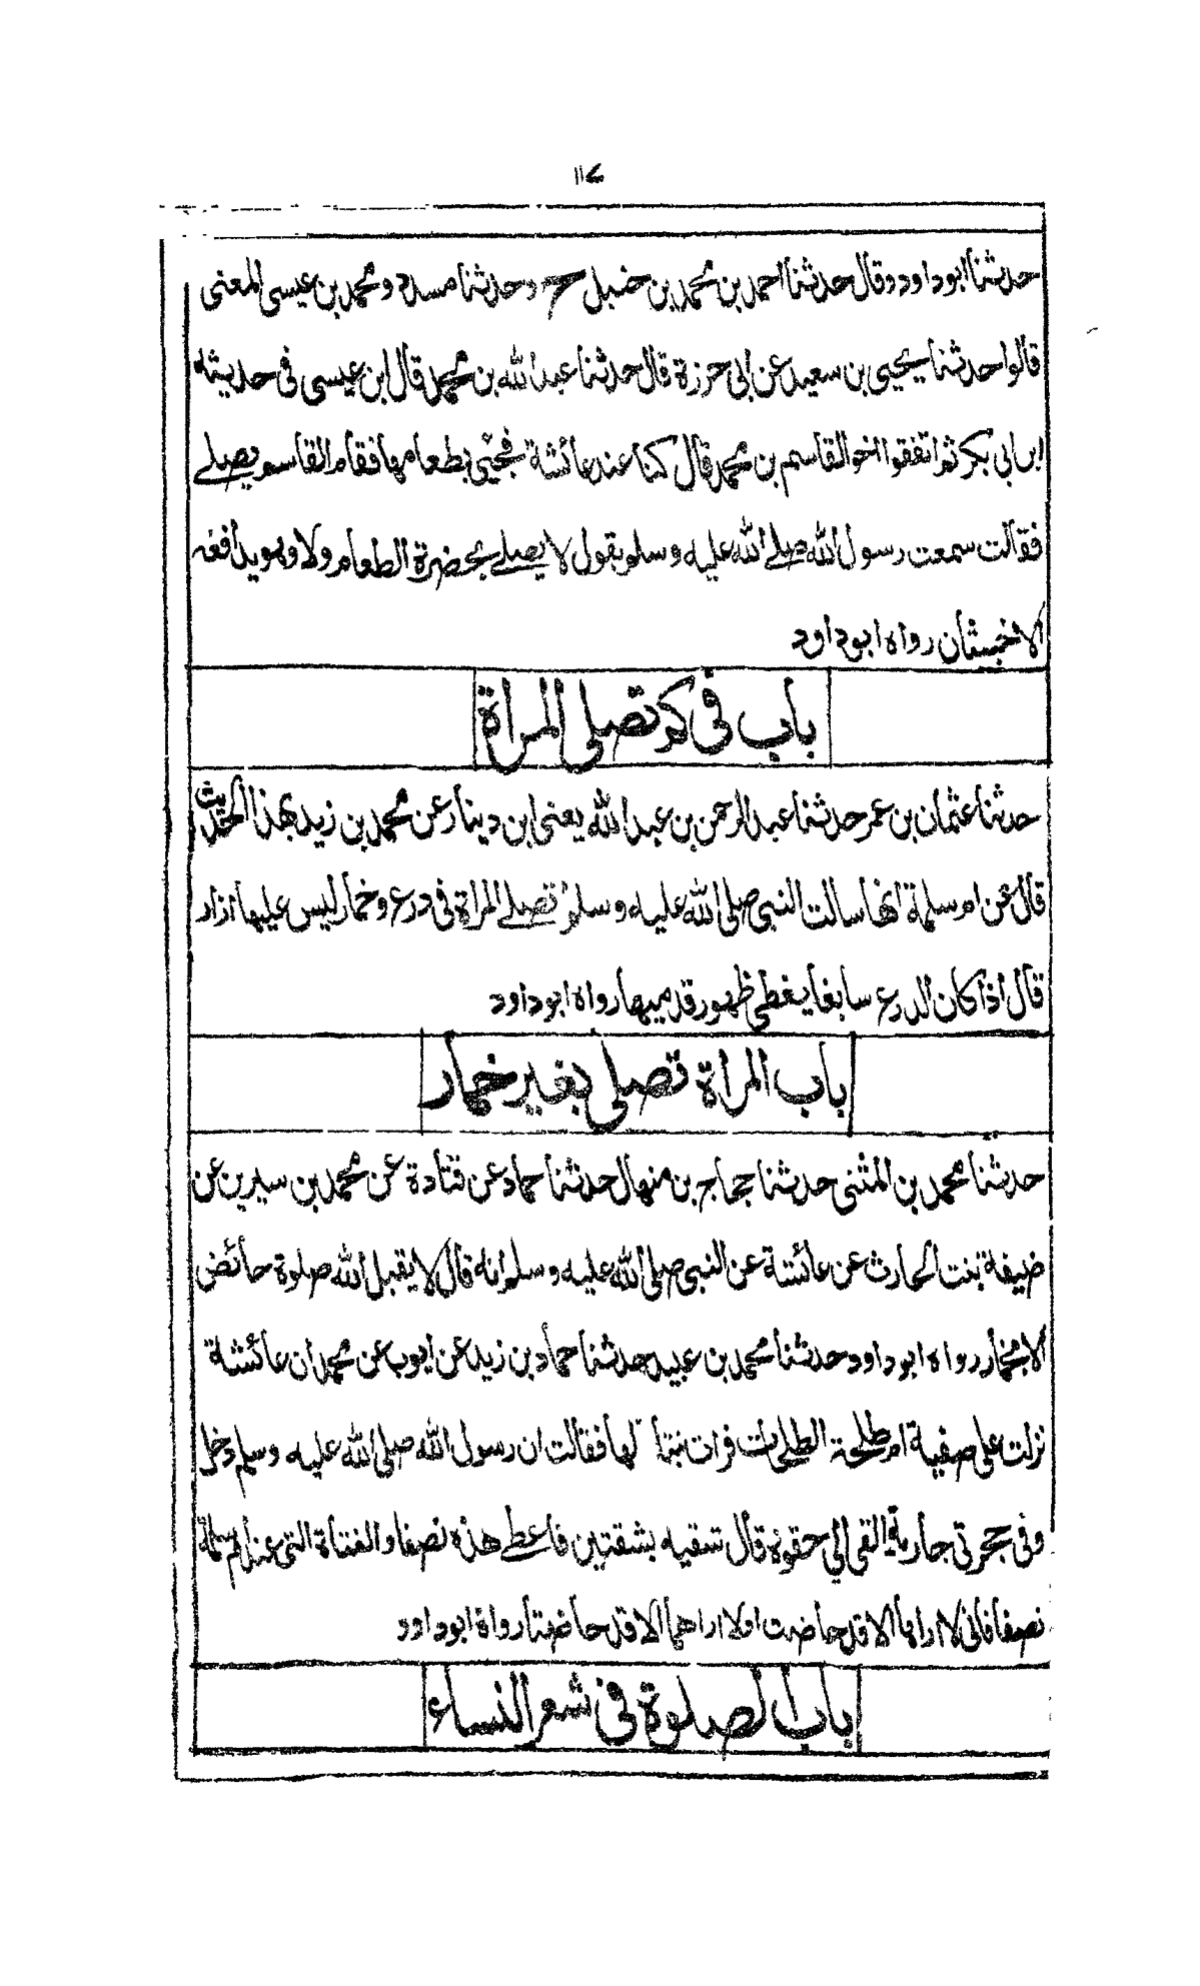 ١١٧
حدثنا ابوداود وقال حدثنا احمد بن محمد بن حنبل ح وحدثنا مسدد ومحمد بن عيسى المعنى
قالوا حدثنا يحيى بن سعيد عن ابى حرزة قال حدثنا عبد الله بن محمد قال ابن عيسى فى حديثه
ابن ابى بكر ثم اتفقوا اخو القاسم بن محمد قال كنا عند عائشة فجئى بطعامها فقام القاسم يصلے
فقالت سمعت رسول الله صلے الله عليه وسلم يقول لا يصلے بحضرة الطعام ولا وهو يدافعه
الاخبثان رواه ابوداود
باب فى كم تصلى المراة
حدثنا عثمان بن عمر حدثنا عبد الرحمن بن عبد الله يعنى ابن دينار عن محمد بن زيد بهذا الحديث
قال عن ام سلمة انها سالت النبى صلى الله عليه وسلم تصلے المراة فى درع وخمار ليس عليها ازار
قال اذا كان الدرع سابغا يغطى ظهور قدميها رواه ابوداود
باب المراة تصلى بغير خمار
حدثنا محمد بن المثنى حدثنا حجاج بن منهال حدثنا حماد عن قتادة عن محمد بن سيرين عن
ضيفة بنت الحارث عن عائشة عن النبى صلى الله عليه وسلم انه قال لا يقبل الله صلوة حائض
الا بخمار رواه ابوداود حدثنا محمد بن عبيد حدثنا حماد بن زيد عن ايوب عن محمد ان عائشة
نزلت على صفية ام طلحة الطلحات فرات بنتا لها فقالت ان رسول الله صلى الله عليه وسلم دخل
وفى حجرتى جارية القى الي حقوة قال شقيه بشقتين فاعطے هذه نصفا والفتاة التى عند ام سلمة
نصفا فانى لا اراها الا قد حاضت او لا اراهما الا قد حاضتا رواة ابوداود
باب الصلوة فى شعر النساء